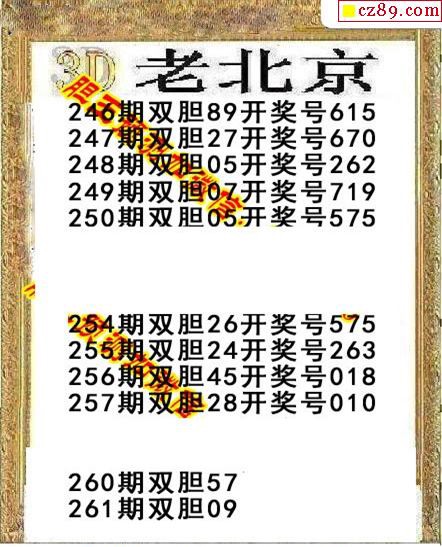 cz89.com
3D 老北京
246期双胆89开奖号615
247期双胆27开奖号670
248期双胆05开奖号262
249期双胆07开奖号719
250期双胆05开奖号575
254期双胆26开奖号575
255期双胆24开奖号263
256期双胆45开奖号018
257期双胆28开奖号010
260期双胆57
261期双胆09